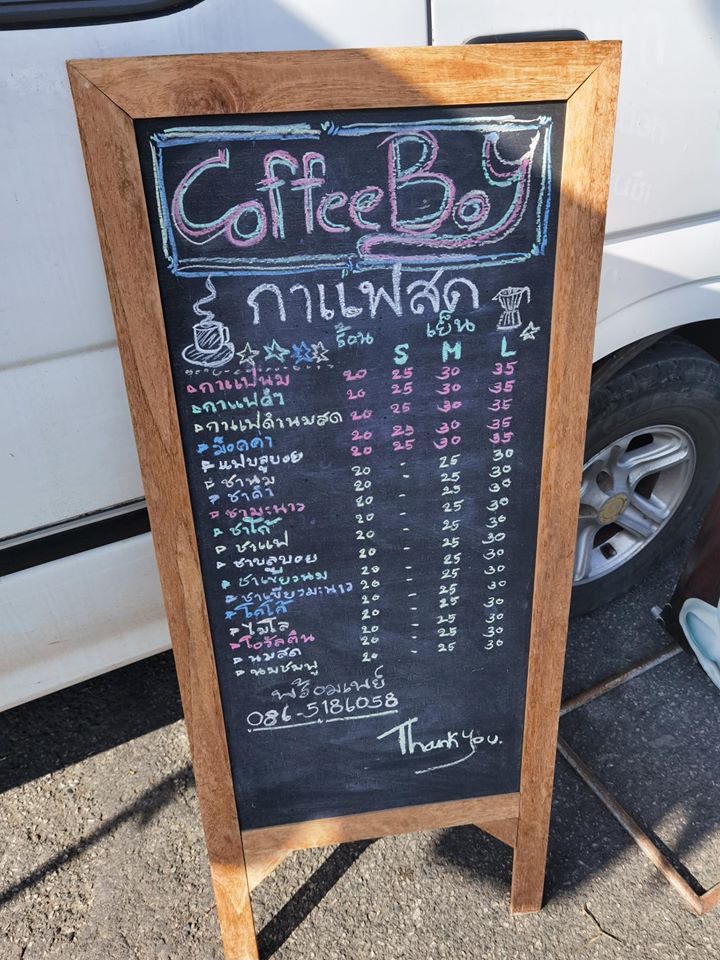 CoffeeBoy
กาแฟสด
ร้อน เย็น
S M L
กาแฟนม 20 25 30 35
กาแฟดำ 20 25 30 35
กาแฟดำนมสด 20 25 30 35
ม็อคคา 20 25 30 35
แฟบลูบอย 20 25 30 35
ชานม 20 - 25 30
ชาดำ 20 - 25 30
ชามะนาว 20 - 25 30
ชาโก้ 20 - 25 30
ชาแฟ 20 - 25 30
ชาบลูบอย 20 - 25 30
ชาเขียวนม 20 - 25 30
ชาเขียวมะนาว 20 - 25 30
โกโก้ 20 - 25 30
ไมโล 20 - 25 30
โอวัลติน 20 - 25 30
นมสด 20 - 25 30
นมชมพู 20 - 25 30
พร้อมเพย์
086-5186058
Thank you.